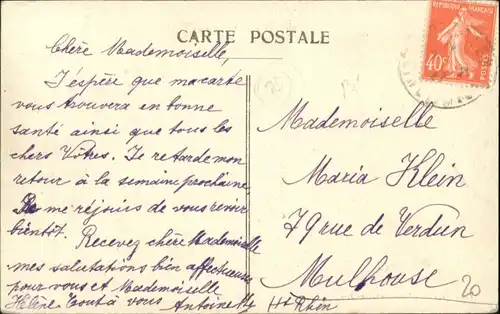 CARTE POSTALE
Chère Mademoiselle,
J'éspère que ma carte
vous trouvera en bonne
santé ainsi que tous les
chers Vôtres. Je retarde mon
retour à la semaine prochaine.
Je me réjouis de vous revoir
bientôt. Recevez chère Mademoiselle
mes salutations bien affectueuses
pour vous et Mademoiselle
Hélène tout à vous Antoinette
REPUBLIQUE FRANÇAISE
40c
POSTES
Mademoiselle
Maria Klein
79 rue de Verdun
Mulhouse
Ht Rhin
20